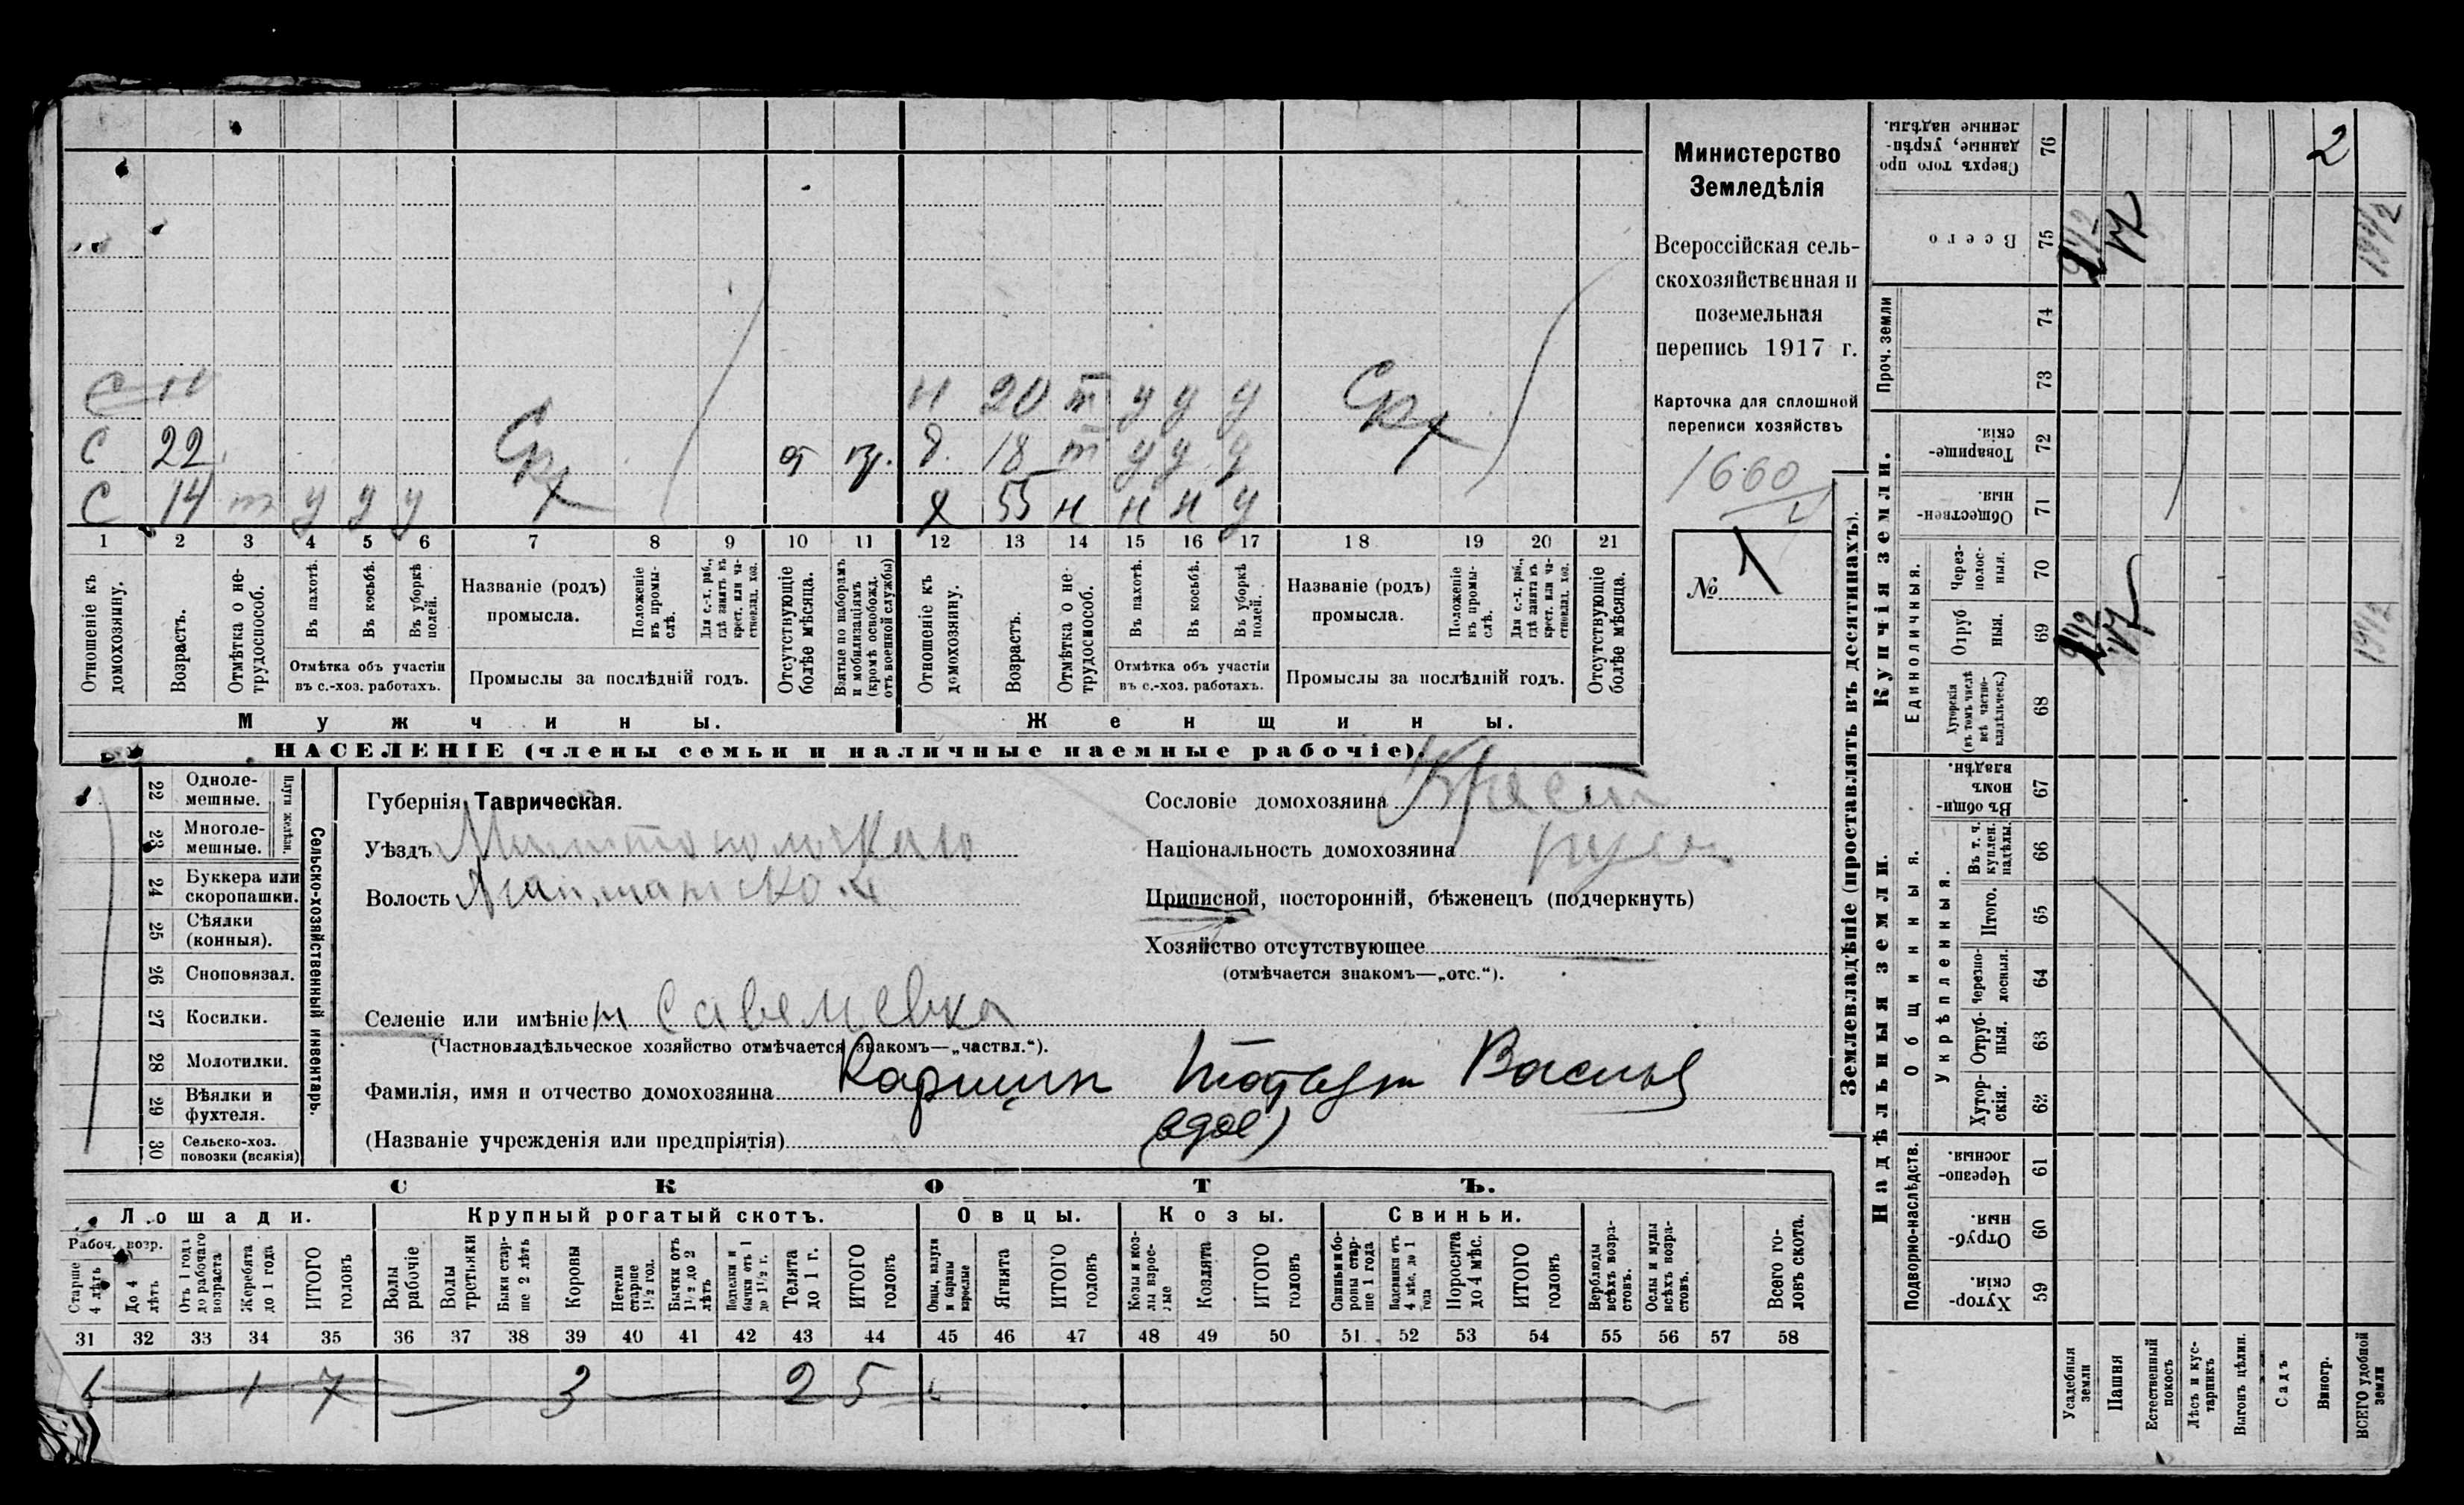 С 11
С 22 Срх от вр.
С 14 т у у у
н 20 т у у у Срх
д. 18 т у у у
х 55 н н н у
1 2 3 4 5 6 7 8 9 10 11 12 13 14 15 16 17 18 19 20 21
Отношеніе къ домохозяину.
Возрастъ.
Отмѣтка о нетрудоспособ.
Въ пахотѣ.
Въ косьбѣ.
Въ уборкѣ полей.
Отмѣтка объ участіи
въ с.-хоз. работахъ.
Названіе (родъ)
промысла.
Положеніе въ промыслѣ.
Для с.-х. раб., гдѣ занятъ въ крест. или частновлад. хоз.
Промыслы за послѣдній годъ.
Отсутствующіе болѣе мѣсяца.
Взятые по наборамъ и мобилизаціямъ (кромѣ освобожд. отъ военной службы)
Отношеніе къ домохозяину.
Возрастъ.
Отмѣтка о нетрудоспособ.
Въ пахотѣ.
Въ косьбѣ.
Въ уборкѣ полей.
Отмѣтка объ участіи
въ с.-хоз. работахъ.
Названіе (родъ)
промысла.
Положеніе въ промыслѣ.
Для с.-х. раб., гдѣ занята въ крест. или частновлад. хоз.
Промыслы за послѣдній годъ.
Отсутствующіе болѣе мѣсяца.
Мужчины.
Женщины.
НАСЕЛЕНІЕ (члены семьи и наличные наемные рабочіе).
Министерство
Земледѣлія
Всероссійская сель-
скохозяйственная и
поземельная
перепись 1917 г.
Карточка для сплошной
переписи хозяйствъ
1660
№ 1
Сельско-хозяйственный инвентарь.
Плуги желѣзн.
22 Одноле-
мешные.
23 Многоле-
мешные.
24 Буккера или
скоропашки.
25 Сѣялки
(конныя).
26 Сноповязал.
27 Косилки.
28 Молотилки.
29 Вѣялки и
фухтеля.
30 Сельско-хоз.
повозки (всякія)
Губернія Таврическая.
Уѣздъ
Волость
Селеніе или имѣніе
(Частновладѣльческое хозяйство отмѣчается знакомъ—„частвл.“).
Сословіе домохозяина Крест
Національность домохозяина русс
Приписной, посторонній, бѣженецъ (подчеркнуть)
Хозяйство отсутствующее
(отмѣчается знакомъ—„отс.“).
Фамилія, имя и отчество домохозяина
(Названіе учрежденія или предпріятія)
СКОТЪ.
Лошади. Крупный рогатый скотъ. Овцы. Козы. Свиньи.
Рабоч. возр.
Старше 4 лѣтъ
До 4 лѣтъ
Отъ 1 года до рабочаго возраста
Жеребята до 1 года
ИТОГО головъ
Волы рабочіе
Волы третьяки
Быки старше 2 лѣтъ
Коровы
Нетели старше 1½ год.
Бычки отъ 1½ до 2 лѣтъ
Телки и бычки отъ 1 до 1½ г.
Телята до 1 г.
ИТОГО головъ
Овцы, валухи и бараны взрослые
Ягнята
ИТОГО головъ
Козы и козлы взрослые
Козлята
ИТОГО головъ
Свиньи и боровы старше 1 года
Подсвинки отъ 4 мѣс. до 1 года
Поросята до 4 мѣс.
ИТОГО головъ
Верблюды всѣхъ возрастовъ.
Ослы и мулы всѣхъ возрастовъ.
Всего головъ скота.
31 32 33 34 35 36 37 38 39 40 41 42 43 44 45 46 47 48 49 50 51 52 53 54 55 56 57 58
1 7 3 2 5
Землевладѣніе (проставлять въ десятинахъ).
Проч. земли
Купчія земли.
Единоличныя.
Надѣльныя земли.
Общинныя.
Укрѣпленныя.
Подворно-наслѣдств.
76 Сверхъ того проданные, укрѣпленные надѣлы.
75 Всего
74
73
72 Товарищескія.
71 Общественныя.
70 Черезполосныя.
69 Отрубныя.
68 Хуторскія (въ томъ числѣ всѣ частновладѣльческ.)
67 Въ общинномъ владѣн.
66 Въ т. ч. куплен. надѣлы.
65 Итого.
64 Черезполосныя.
63 Отрубныя.
62 Хуторскія.
61 Черезполосныя.
60 Отрубныя.
59 Хуторскія.
Усадебныя земли
Пашня
Естественный покосъ
Лѣсъ и кустарникъ
Выгонъ цѣлин.
Садъ
Виногр.
ВСЕГО удобной земли
2